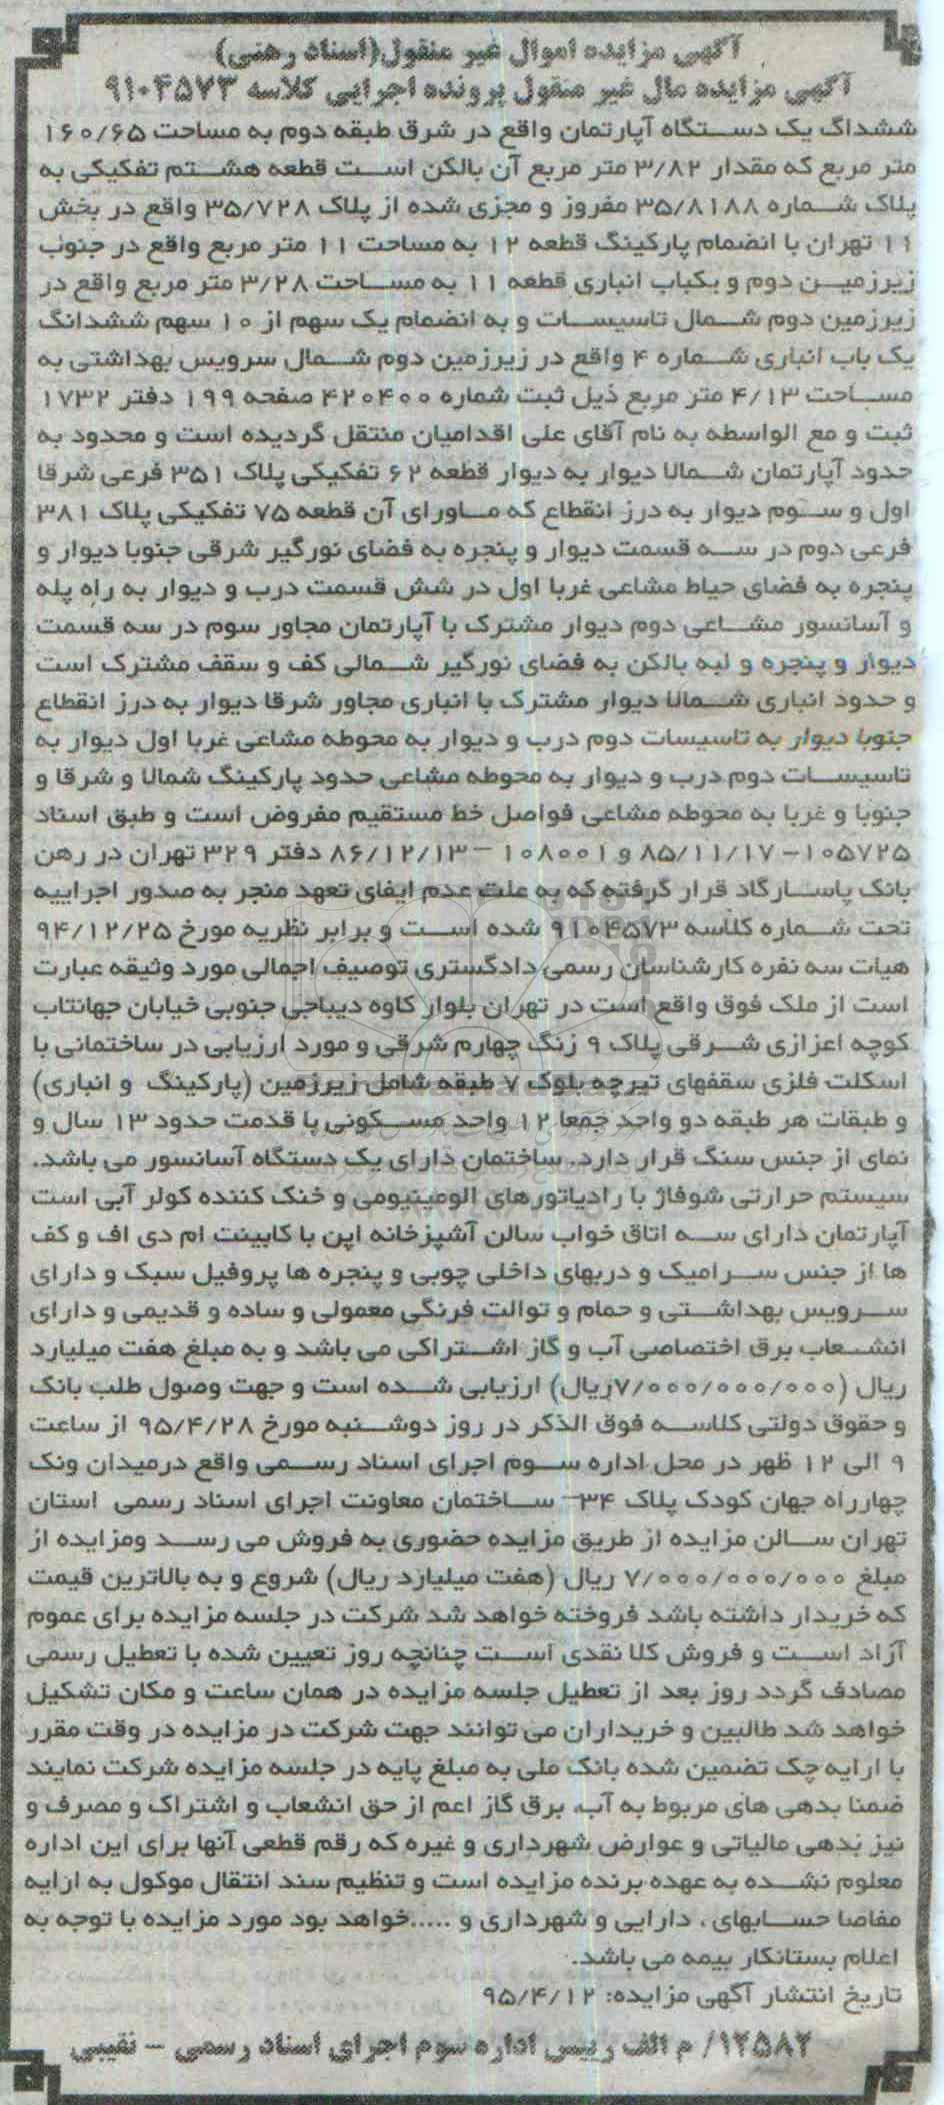 آگهی مزایده اموال غیر منقول(اسناد رهنی)
آگهی مزایده مال غیر منقول پرونده اجرایی کلاسه ۹۱۰۴۵۷۳
ششدانگ یک دستگاه آپارتمان واقع در شرق طبقه دوم به مساحت ۱۶۰/۶۵
متر مربع که مقدار ۳/۸۲ متر مربع آن بالکن است قطعه هشتم تفکیکی به
پلاک شماره ۳۵/۸۱۸۸ مفروز و مجزی شده از پلاک ۳۵/۷۲۸ واقع در بخش
۱۱ تهران با انضمام پارکینگ قطعه ۱۲ به مساحت ۱۱ متر مربع واقع در جنوب
زیرزمین دوم و یکباب انباری قطعه ۱۱ به مساحت ۳/۲۸ متر مربع واقع در
زیرزمین دوم شمال تاسیسات و به انضمام یک سهم از ۱۰ سهم ششدانگ
یک باب انباری شماره ۴ واقع در زیرزمین دوم شمال سرویس بهداشتی به
مساحت ۴/۱۳ متر مربع ذیل ثبت شماره ۴۲۰۴۰۰ صفحه ۱۹۹ دفتر ۱۷۳۲
ثبت و مع الواسطه به نام آقای علی اقدامیان منتقل گردیده است و محدود به
حدود آپارتمان شمالا دیوار به دیوار قطعه ۶۲ تفکیکی پلاک ۳۵۱ فرعی شرقا
اول و سوم دیوار به درز انقطاع که ماورای آن قطعه ۷۵ تفکیکی پلاک ۳۸۱
فرعی دوم در سه قسمت دیوار و پنجره به فضای نورگیر شرقی جنوبا دیوار و
پنجره به فضای حیاط مشاعی غربا اول در شش قسمت درب و دیوار به راه پله
و آسانسور مشاعی دوم دیوار مشترک با آپارتمان مجاور سوم در سه قسمت
دیوار و پنجره و لبه بالکن به فضای نورگیر شمالی کف و سقف مشترک است
و حدود انباری شمالا دیوار مشترک با انباری مجاور شرقا دیوار به درز انقطاع
جنوبا دیوار به تاسیسات دوم درب و دیوار به محوطه مشاعی غربا اول دیوار به
تاسیسات دوم درب و دیوار به محوطه مشاعی حدود پارکینگ شمالا و شرقا و
جنوبا و غربا به محوطه مشاعی فواصل خط مستقیم مفروض است و طبق اسناد
۱۰۵۷۲۵- ۸۵/۱۱/۱۷ و ۱۰۸۰۰۱ – ۸۶/۱۲/۱۳ دفتر ۳۲۹ تهران در رهن
بانک پاسارگاد قرار گرفته که به علت عدم ایفای تعهد منجر به صدور اجراییه
تحت شماره کلاسه ۹۱۰۴۵۷۳ شده است و برابر نظریه مورخ ۹۴/۱۲/۲۵
هیات سه نفره کارشناسان رسمی دادگستری توصیف اجمالی مورد وثیقه عبارت
است از ملک فوق واقع است در تهران بلوار کاوه دیباجی جنوبی خیابان جهانتاب
کوچه اعزازی شرقی پلاک ۹ زنگ چهارم شرقی و مورد ارزیابی در ساختمانی با
اسکلت فلزی سقفهای تیرچه بلوک ۷ طبقه شامل زیرزمین (پارکینگ و انباری)
و طبقات هر طبقه دو واحد جمعا ۱۲ واحد مسکونی با قدمت حدود ۱۳ سال و
نمای از جنس سنگ قرار دارد. ساختمان دارای یک دستگاه آسانسور می باشد.
سیستم حرارتی شوفاژ با رادیاتورهای الومینیومی و خنک کننده کولر آبی است
آپارتمان دارای سه اتاق خواب سالن آشپزخانه اپن با کابینت ام دی اف و کف
ها از جنس سرامیک و دربهای داخلی چوبی و پنجره ها پروفیل سبک و دارای
سرویس بهداشتی و حمام و توالت فرنگی معمولی و ساده و قدیمی و دارای
انشعاب برق اختصاصی آب و گاز اشتراکی می باشد و به مبلغ هفت میلیارد
ریال (۷/۰۰۰/۰۰۰/۰۰۰ریال) ارزیابی شده است و جهت وصول طلب بانک
و حقوق دولتی کلاسه فوق الذکر در روز دوشنبه مورخ ۹۵/۴/۲۸ از ساعت
۹ الی ۱۲ ظهر در محل اداره سوم اجرای اسناد رسمی واقع درمیدان ونک
چهارراه جهان کودک پلاک ۳۴– ساختمان معاونت اجرای اسناد رسمی استان
تهران سالن مزایده از طریق مزایده حضوری به فروش می رسد ومزایده از
مبلغ ۷/۰۰۰/۰۰۰/۰۰۰ ریال (هفت میلیارد ریال) شروع و به بالاترین قیمت
که خریدار داشته باشد فروخته خواهد شد شرکت در جلسه مزایده برای عموم
آزاد است و فروش کلا نقدی است چنانچه روز تعیین شده با تعطیل رسمی
مصادف گردد روز بعد از تعطیل جلسه مزایده در همان ساعت و مکان تشکیل
خواهد شد طالبین و خریداران می توانند جهت شرکت در مزایده در وقت مقرر
با ارایه چک تضمین شده بانک ملی به مبلغ پایه در جلسه مزایده شرکت نمایند
ضمنا بدهی های مربوط به آب، برق گاز اعم از حق انشعاب و اشتراک و مصرف و
نیز بدهی مالیاتی و عوارض شهرداری و غیره که رقم قطعی آنها برای این اداره
معلوم نشده به عهده برنده مزایده است و تنظیم سند انتقال موکول به ارایه
مفاصا حسابهای ، دارایی و شهرداری و .....خواهد بود مورد مزایده با توجه به
اعلام بستانکار بیمه می باشد.
تاریخ انتشار آگهی مزایده: ۹۵/۴/۱۲
۱۲۵۸۲/ م الف رییس اداره سوم اجرای اسناد رسمی – نقیبی